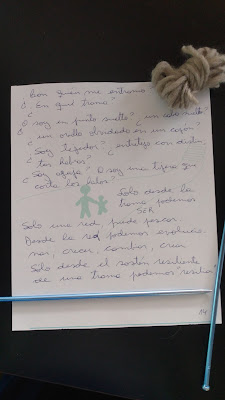 ¿Con quién me entramo?
¿En qué trama?
¿O soy un punto suelto? ¿un cabo suelto?
¿un ovillo olvidado en un cajón?
¿Soy tejedor? ¿entretejo con distin-
tas hebras?
¿Soy aguja? O soy una tijera que
corta los hilos?
Solo desde la
trama podemos
SER
Solo una red, puede pescar.
Desde la red podemos evolucio-
nar, crecer, cambiar, crear
Solo desde el sostén resiliente
de una trama podemos "resiliar"
14